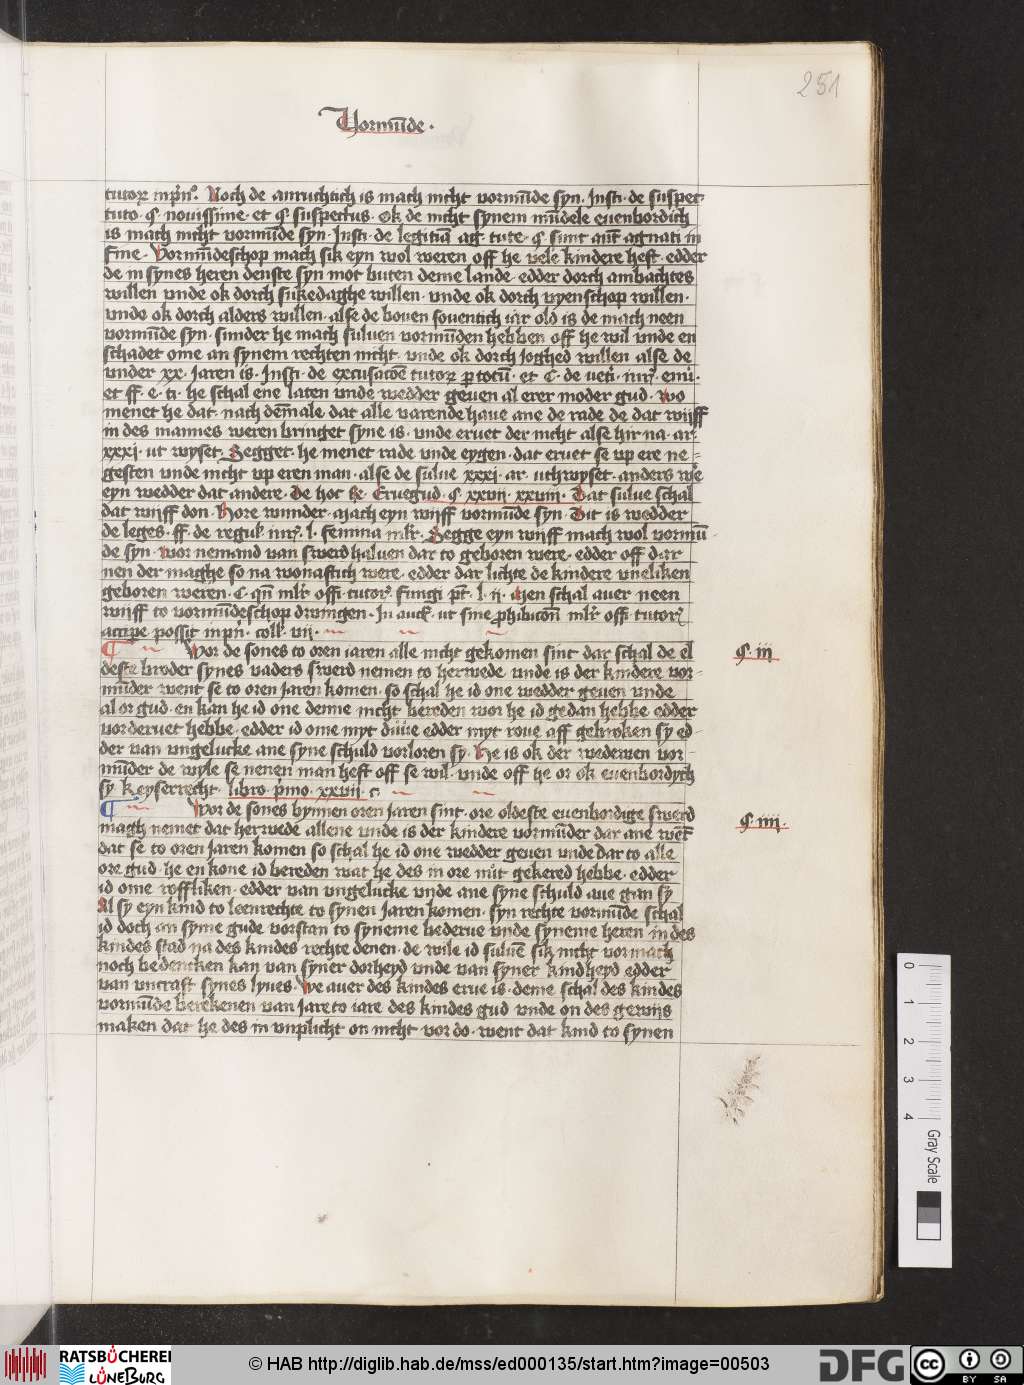 251
Vormu̅de ·
tutor̅ inpn̅ᵒ. Noch de anruchtich is mach nicht vormu̅de syn. Insti · de suspect
tuto · § novissime · et § suspectus · Ok de nicht synem mu̅dele euenbordich
is mach nicht vormu̅de syn · Insti · de legitia̅ ag · tute · § sunt au̅t agnati in
fine · Vormu̅deschop mach sik eyn wol weren off he vele kindere heft · edder
de in synes heren denste syn mot buten deme lande · edder dorch ambachtes
willen vnde ok dorch sukedaghe willen · vnde ok dorch vyenschop willen ·
vnde ok dorch alders willen · alse de bouen souentich iar old is de mach neen
vormu̅de syn · sunder he mach suluen vormu̅den hebben off he wil vnde en
schadet ome an synem rechten nicht · vnde ok dorch Joghed willen alse de
vnder xx · Jaren is · Insti · de excusacōe tutor̅ · et C · de
et ff · e · ti · he schal ene laten vnde wedder geuen al erer moder gud · Wo
menet he dat · nach de̅male dat alle varende haue ane de rade de dat wijff
in des mannes weren bringet syne is · vnde eruet der nicht alse hir na · ar ·
xxxj · vt wyset · Segget · he menet rade vnde eygen · dat eruet se vp ere ne-
gesten vnde nicht vp eren man · alse de sulue xxxj · ar · uthwyset · anders we̅
eyn wedder dat andere · De hoc Eruegud · § xxvij · xxviij · Dat sulue schal
dat wijff don · Hore wunder · Mach eyn wijff vormu̅de syn · Dit is wedder
de leges · ff · de regul · iur̅ · l · femina · Segge eyn wijff mach wol vormu̅
de syn · wor nemand van swerd haluen dar to geboren were · edder off dar
nen der maghe so na wonaftich were · edder dar lichte de kindere vneliken
geboren weren · C · qn̅ ml̅r offi · tutor̅ · fungi pt̅ · l · ij · Men schal auer neen
wijff to vormu̅deschop dwingen · In auct̅ · ut sine prohibicōn ml̅r offi · tutor̅
accipe possit inpn̅ · coll · vij ·
Wor de sones to oren iaren alle nicht gekomen sint dar schal de el
deste broder synes vaders swerd nemen to herwede · vnde is der kindere vor-
mu̅der went se to oren Jaren komen · so schal he id one wedder geuen vnde
al or gud · en kan he id one denne nicht bereden wor he id gedan hebbe edder
vorderuet hebbe · edder id ome myt duue edder myt roue aff gebroken sy ed-
der van vngelucke ane syne schuld vorloren sy · He is ok der wedewen vor-
mu̅der de wyle se nenen man heft off se wil · vnde off he or ok euenbordych
sy Keyserrecht · libro · pmo · xxvij · c
§ iij
Wor de sones bynnen oren Jaren sint · ore oldeste euenbordige swerd
magh nemet dat herwede allene vnde is der kindere vormu̅der dar ane we̅t
dat se to oren Jaren komen so schal he id one wedder geuen vnde dar to alle
ore gud · he en kone id bereden wat he des in ore nut gekered hebbe · edder
id ome roffliken · edder van vngelucke vnde ane syne schuld aue gan sy
Al sy eyn kind to leenrechte to synen Jaren komen · syn rechte vormu̅de schal
id doch an syme gude vorstan to syneme bederue vnde syneme heren in des
kindes stad na des kindes rechte denen · de wile id sulue̅ sik nicht vormach
noch bedencken kan van syner dorheyd vnde van syner kindheyd edder
van vncraft synes lyues · We auer des kindes erue is · deme schal des kindes
vormu̅de berekenen van Jare to iare des kindes gud vnde on des gewijs
maken dat he des in vnplicht on nicht vor do · went dat kind to synen
§ iiij ·
0 1 2 3 4
Gray Scale
RATSBÜCHEREI
LÜNEBURG
© HAB http://diglib.hab.de/mss/ed000135/start.htm?image=00503
DFG
cc
BY SA